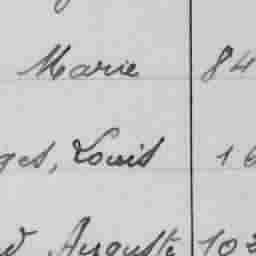 Marie 84
ges, Louis 16
Auguste 103